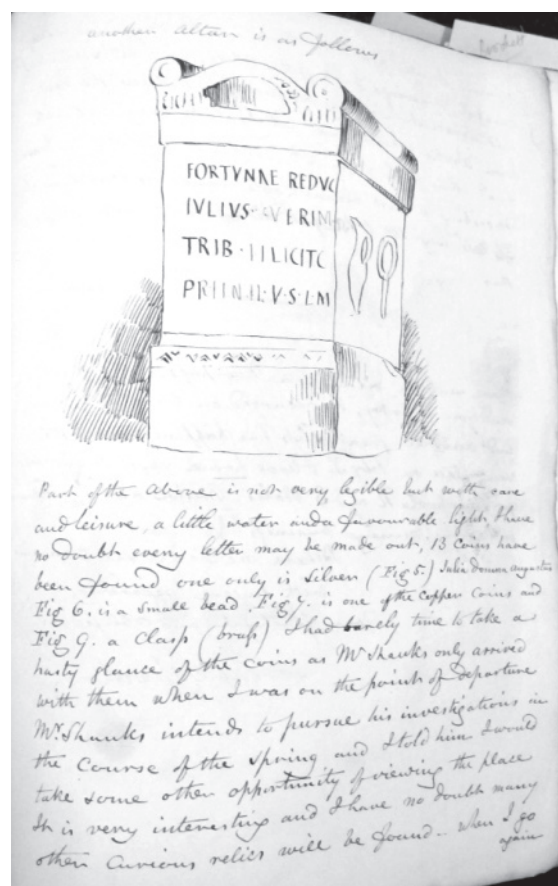 another Altar is as follows
FORTVNAE REDVC
IVLIVS VERIN
TRIB · IILICITC
PRIINIL · V · S · L M
Part of the above is not very legible but with care
and leisure, a little water and a favourable light, I have
no doubt every letter may be made out, 13 Coins have
been found one only is Silver (Fig 5.) Julia Domna Augustus
Fig 6. is a small bead. Fig 7. is one of the copper Coins and
Fig 9. a Clasp (brass) I had barely time to take a
hasty glance of the Coins as Mr Shanks only arrived
with them when I was on the point of departure
Mr. Shanks intends to pursue his investigations in
the Course of the Spring and I told him I would
take some other opportunity of viewing the place
It is very interesting and I have no doubt many
other Curious relics will be found – when I go
again